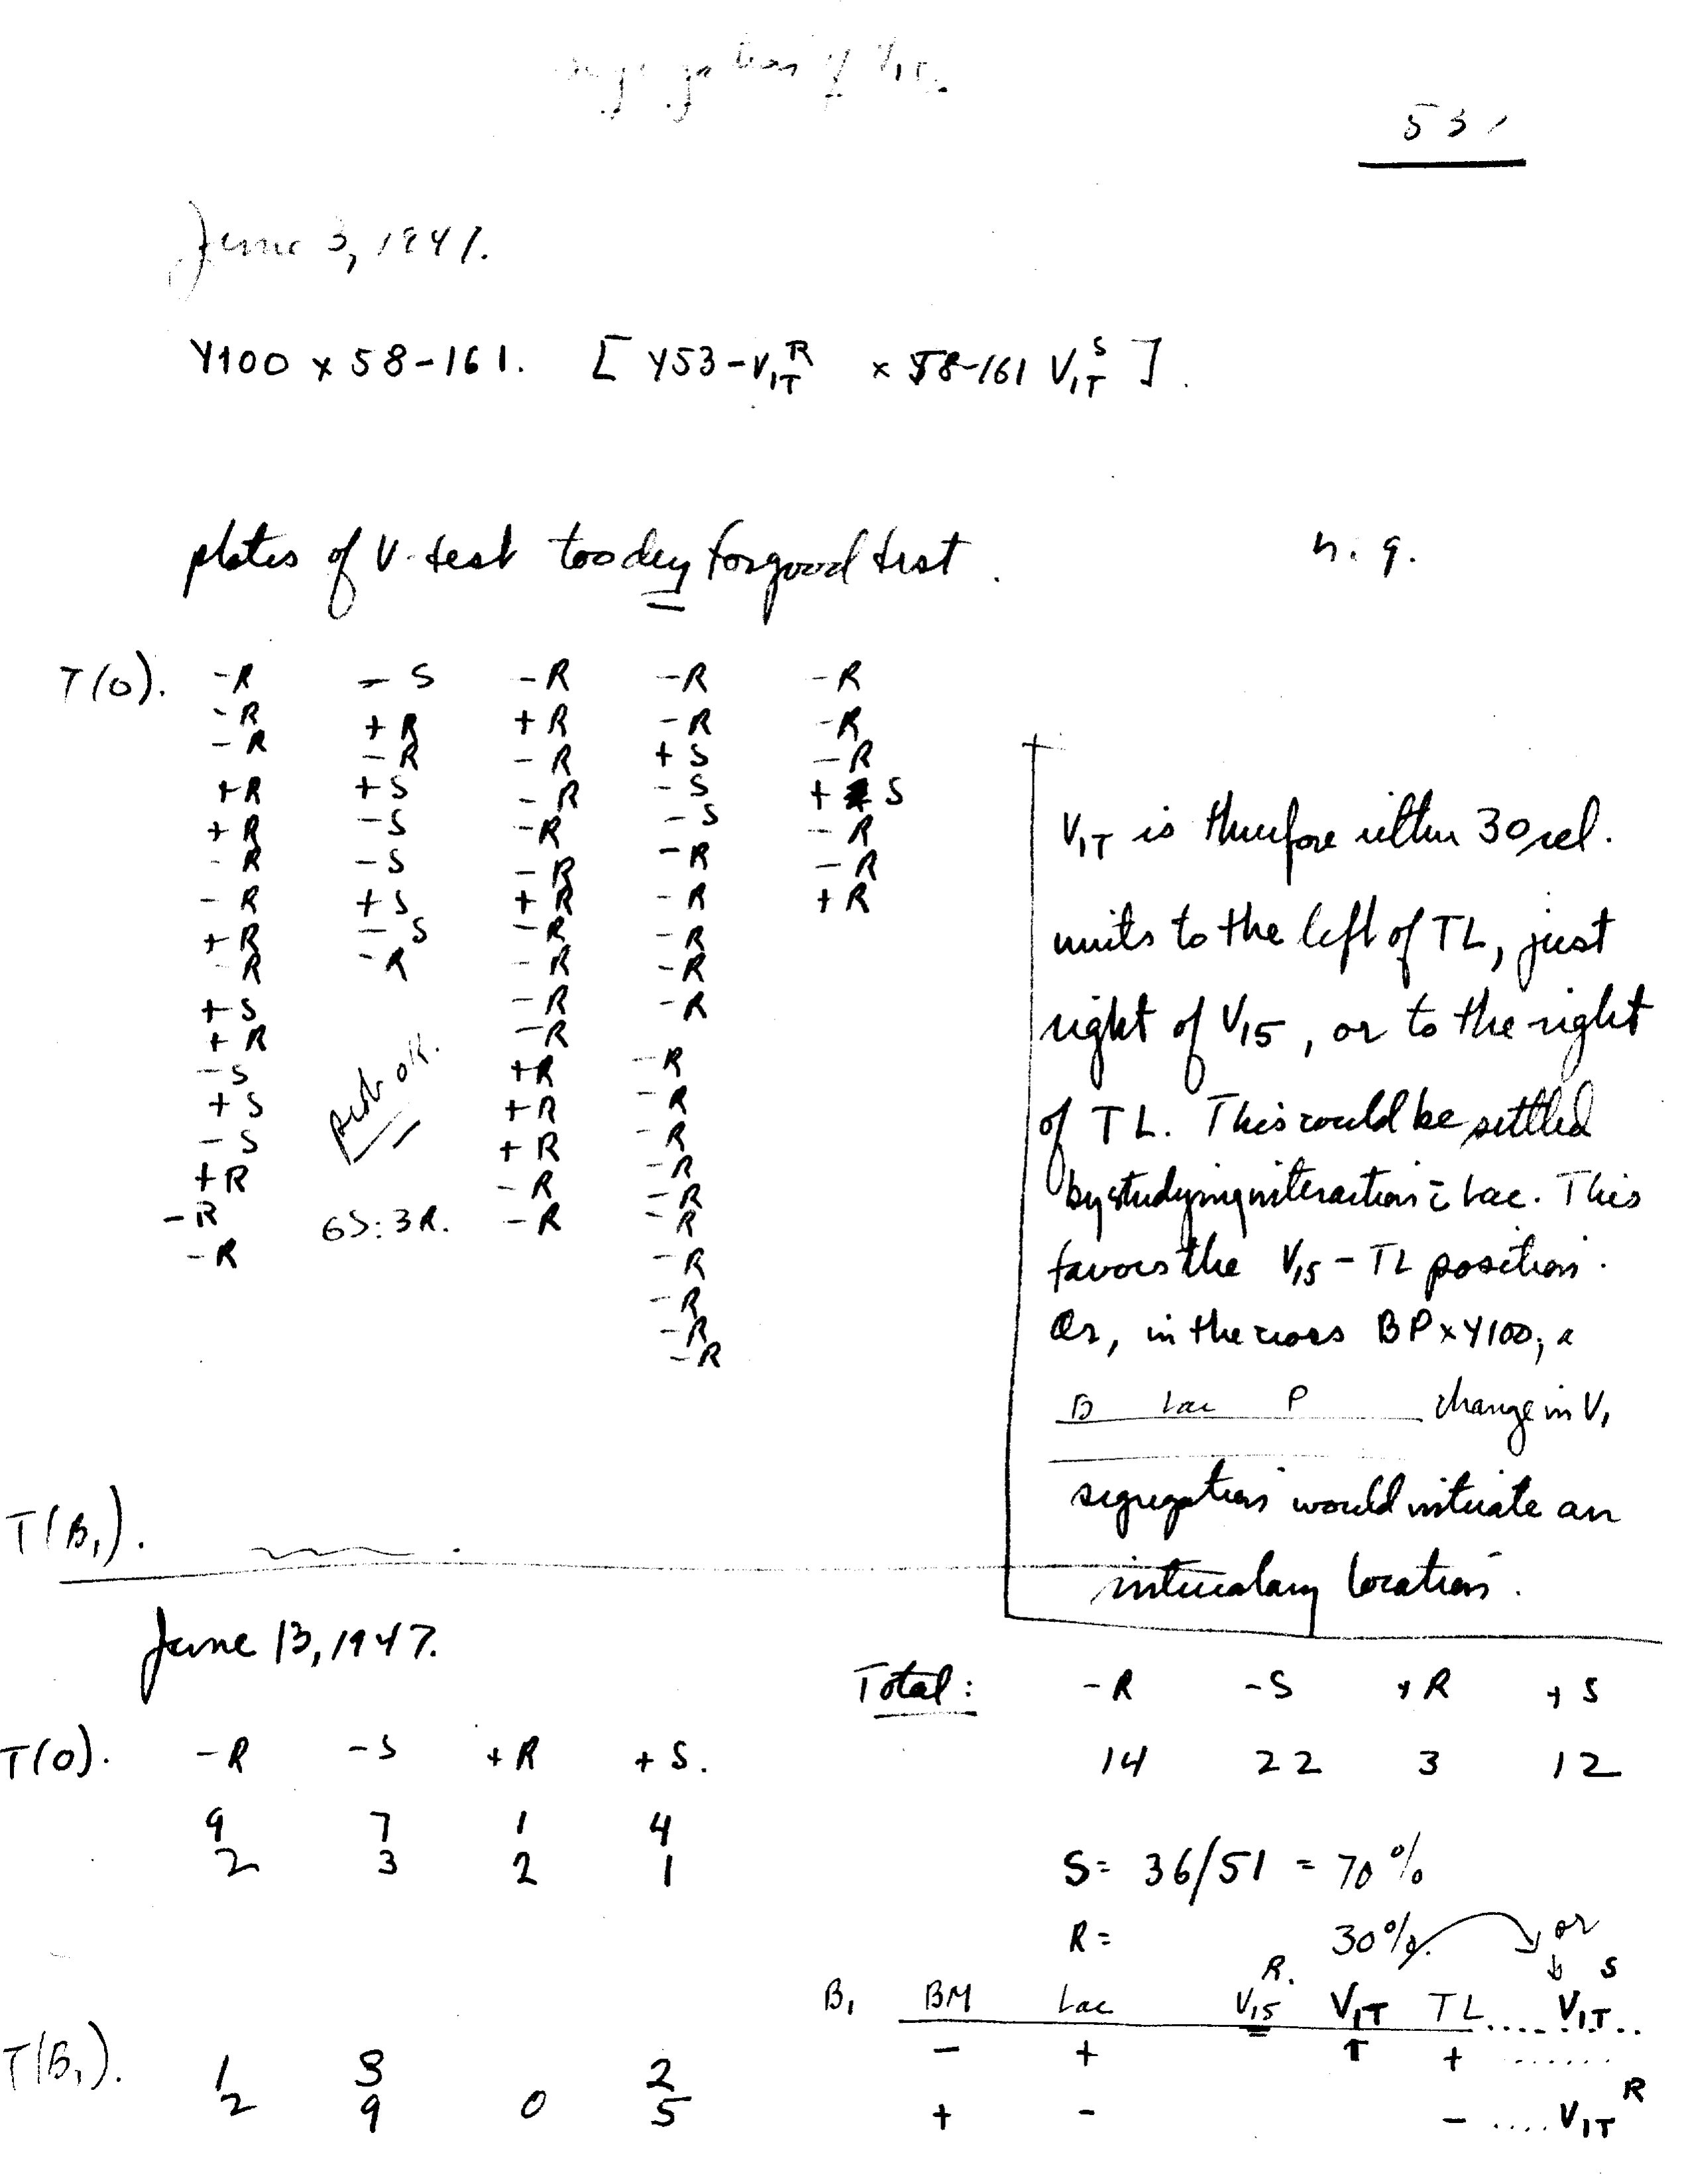 segregation of V1T.
531
June 3, 1947.
Y100 x 58-161. [ Y53-V1T^R x 58-161 V1T^S ].
plates of V-test too dry for good test. n.g.
T(0). -R - S -R -R -R
-R +R +R -R -R
-R -R -R +S -R
+R +S -R -S + S
+R -S -R -S -R
-R -S -R -R -R
-R +S +R -R +R
+R - S -R -R
-R -R -R -R
+S -R -R
+R -R
-S +R -R
+S +R -R
-S +R -R
+R -R -R
-R 6S:3R. -R -R
-R -R
-R
-R
-R
-R
test OK.
V1T is therefore within 30 rel.
units to the left of TL, just
right of V15, or to the right
of TL. This could be settled
by studying interaction c̄ Lac. This
favors the V15-TL position.
Or, in the cross BPxY100, a
B Lac P change in V1
segregation would indicate an
intercalary location.
T(B1).
June 13, 1947.
Total: -R -S +R +S
14 22 3 12
T(0). -R -S +R +S.
9 7 1 4
2 3 2 1
S= 36/51 = 70%
R= 30%. or
R. S
B1 BM Lac V15 V1T TL..... V1T..
- + ↑ + ......
+ - - .... V1T^R
T(B1). 1 3 2
2 9 0 5